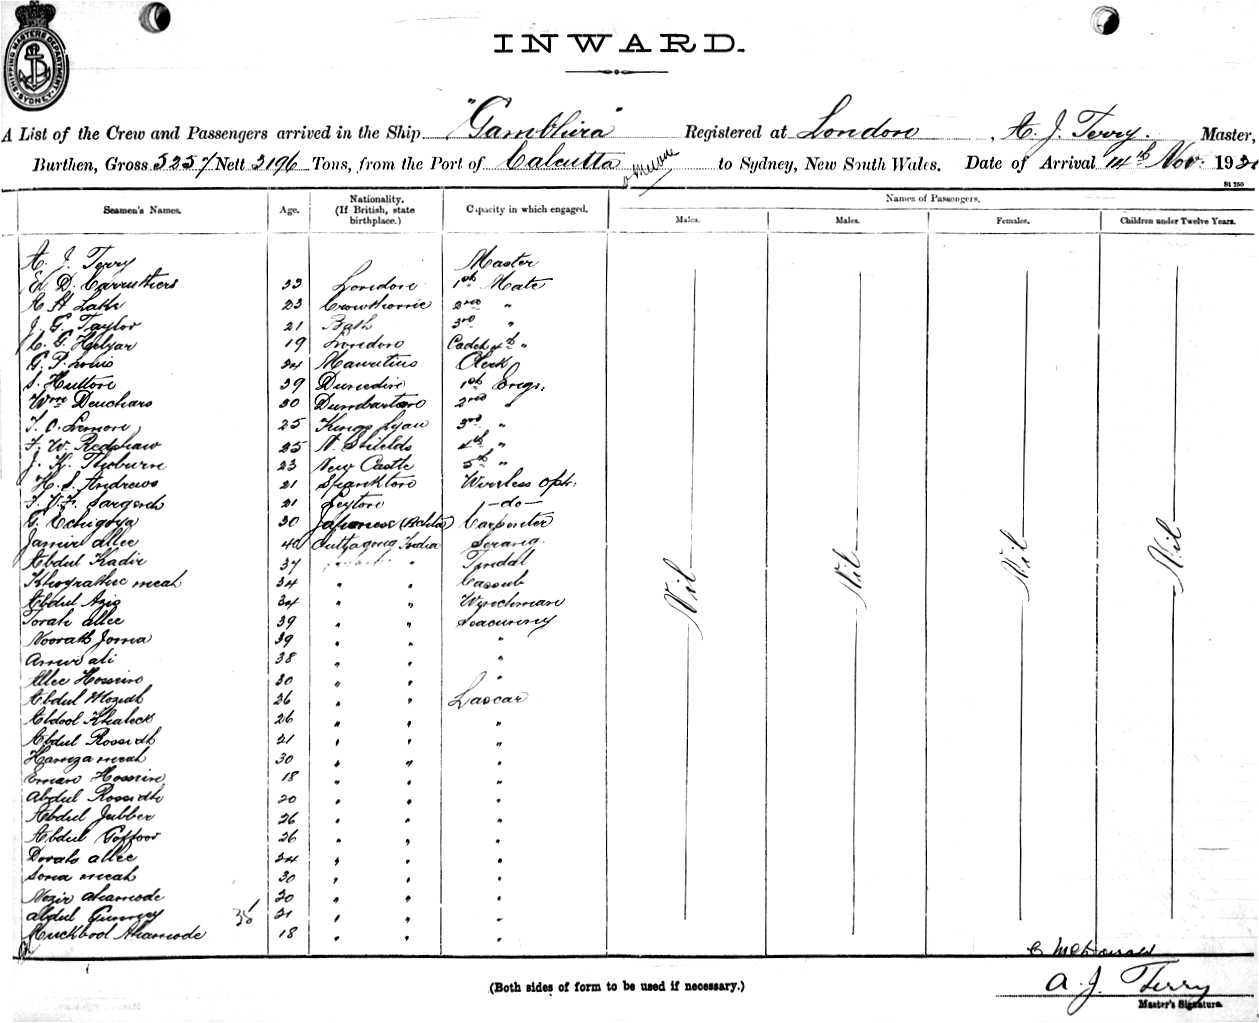 SHIPPING MASTERS DEPARTMENT SYDNEY
INWARD.
A List of the Crew and Passengers arrived in the Ship "Gambhira" Registered at London, A. J. Terry. Master,
Burthen, Gross 5257 Nett 3196 Tons, from the Port of Calcutta to Sydney, New South Wales. Date of Arrival 14th Nov. 192
Seamen's Names. Age. Nationality. (If British, state birthplace.) Capacity in which engaged. Names of Passengers.
Males. Males. Females. Children under Twelve Years.
A. J. Terry Master
D. Carruthers 33 London 1st Mate
H Lake 23 Crowthorne 2nd "
J. G. Taylor 21 Bath 3rd "
G. Helyar 19 London Cadet 4th "
G. P. Louis 24 Mauritius Clerk
S. Hutton 39 Dunedin 1st Engr.
Wm Deuchars 30 Dumbarton 2nd "
T. O. Lemon 25 Kings Lynn 3rd "
F. W. Redshaw 25 N. Shields 4th "
J. K. Thoburn 23 New Castle 5th "
H. S. Andrews 21 Wireless Optr.
Sargent 21 Leyton -do-
G. Echigoya 30 Japanese Carpenter
Jamir allee 40 India Serang
Abdul Kadir 37 " Tindal
meah 34 " " Cassub
Abdul Aziz 34 " " Winchman
Torab allee 39 " " Seacunny
Joma 39 " " "
ali 38 " " "
Allee Hossein 30 " " "
Abdul 26 " " Lascar
Abdool Khaleck 26 " " "
Abdul Rossidh 21 " " "
Hamza meah 30 " " "
Eman Hossein 18 " " "
Abdul Rossidh 20 " " "
Abdul Jubber 26 " " "
Abdul Goffoor 26 " " "
Dorab allee 24 " " "
Sona meah 30 " " "
Nozir ahamode 20 " " "
abdul 35 21 " " "
Muckbool Ahamode 18 " " "
Nil Nil Nil Nil
McDonald
(Both sides of form to be used if necessary.) A. J. Terry
Master's Signature.